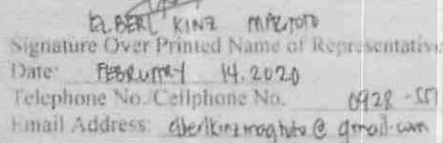 ELBERT KINZ MAGTOTO
Signature Over Printed Name of Representative
Date: FEBRUARY 14. 2020
Telephone No./Cellphone No. 0928 -
Email Address: elbertkinzmagtoto@gmail.com